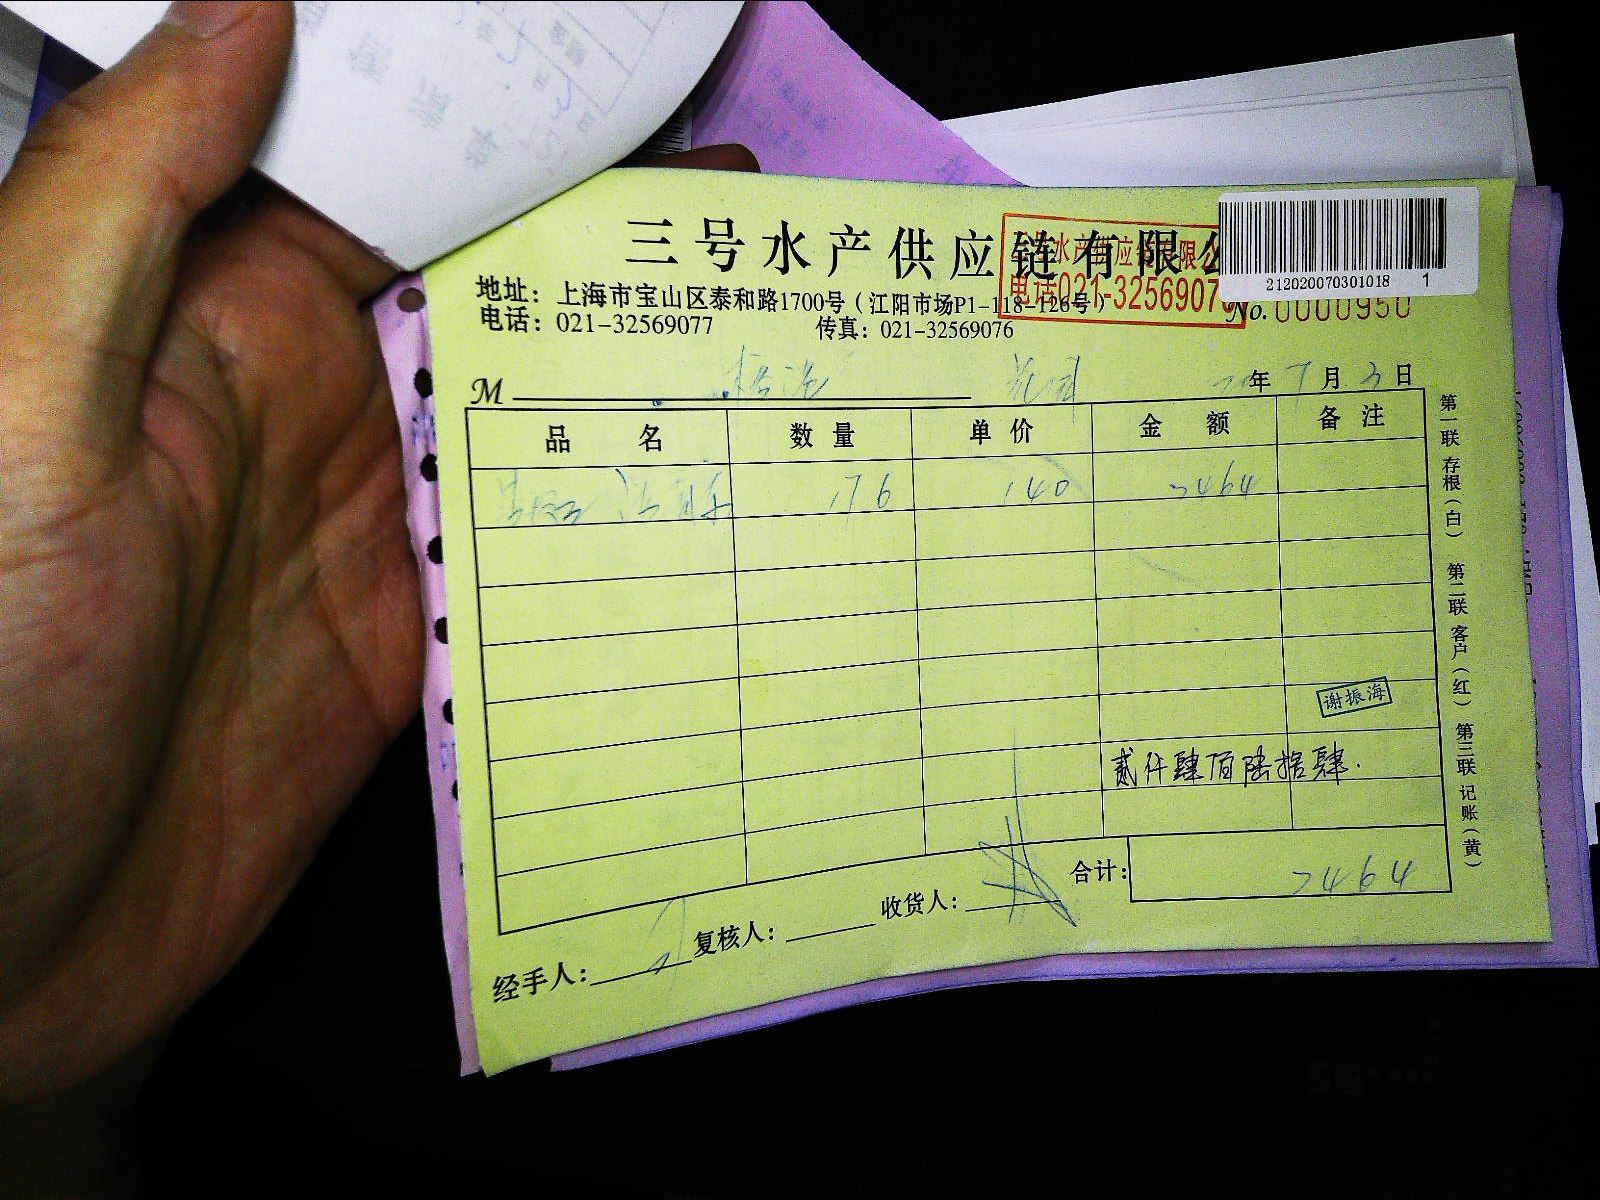 三号水产供应链有限公
三号水产供应链有限公
电话021-32569076
212020070301018 1
地址：上海市宝山区泰和路1700号（江阳市场P1-118-126号）
No. 0000950
电话：021-32569077 传真：021-32569076
M 年 7 月 3 日
品 名 数 量 单 价 金 额 备 注
176 140 2464
谢振海
贰仟肆佰陆拾肆.
合计： 2464
经手人： 复核人： 收货人：
第一联 存根（白） 第二联 客户（红） 第三联 记账（黄）